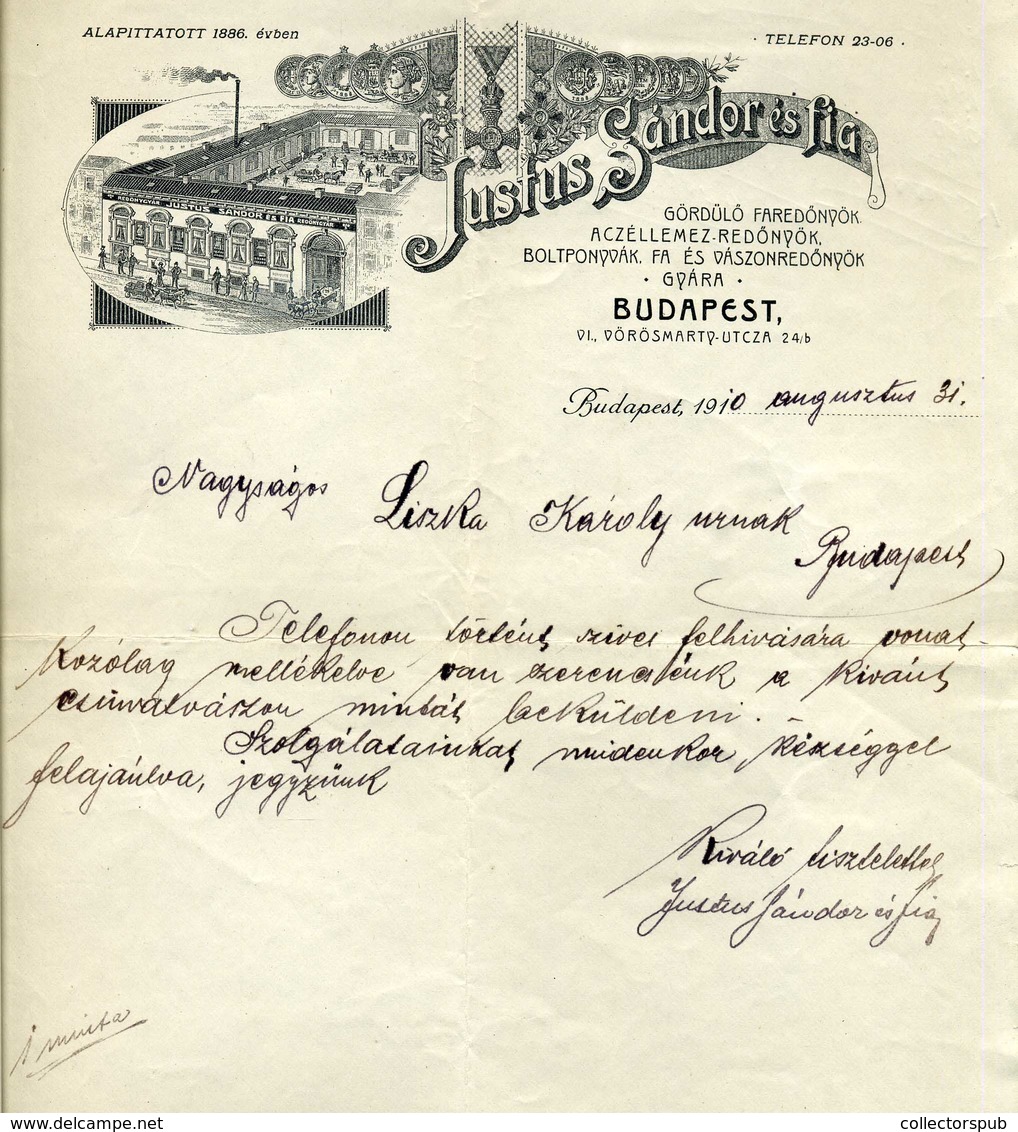 ALAPITTATOTT 1886. évben
· TELEFON 23-06 ·
Justus Sándor és fia
REDŐNYGYÁR JUSTUS SÁNDOR ÉS FIA REDŐNYGYÁR
GÖRDÜLŐ FAREDŐNYÖK,
ACZÉLLEMEZ-REDŐNYÖK,
BOLTPONYVÁK, FA ÉS VÁSZONREDŐNYÖK
· GYÁRA ·
BUDAPEST,
VI., VÖRÖSMARTY-UTCZA 24/b
Budapest, 1910 augusztus 31.
Nagyságos Liszka Károly urnak
Budapest
Telefonon történt szives felhivására vonat-
kozólag mellékelve van szerencsénk a kivánt
csinvatvászon mintát beküldeni. –
Szolgálatainkat mindenkor készséggel
felajánlva, jegyzünk
Kiváló tisztelettel
Justus Sándor és fia
1 minta
Delcampe.net
collectorspub